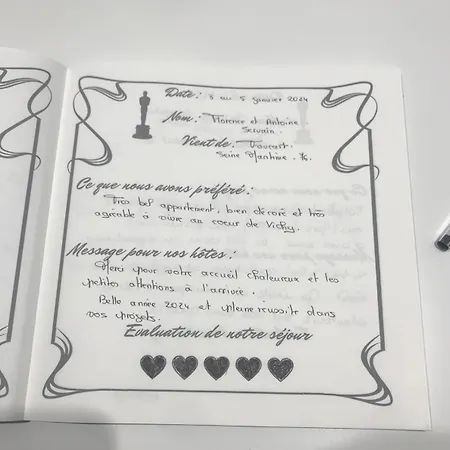 Date : 3 au 5 janvier 2024
Nom : Florence et Antoine
Servain.
Vient de :
Seine Maritime. 76
Ce que nous avons préféré :
Très bel appartement, bien décoré et très
agréable à vivre au coeur de Vichy.
Message pour nos hôtes :
Merci pour votre accueil chaleureux et les
petites attentions à l'arrivée.
Belle année 2024 et pleine réussite dans
vos projets.
Evaluation de notre séjour